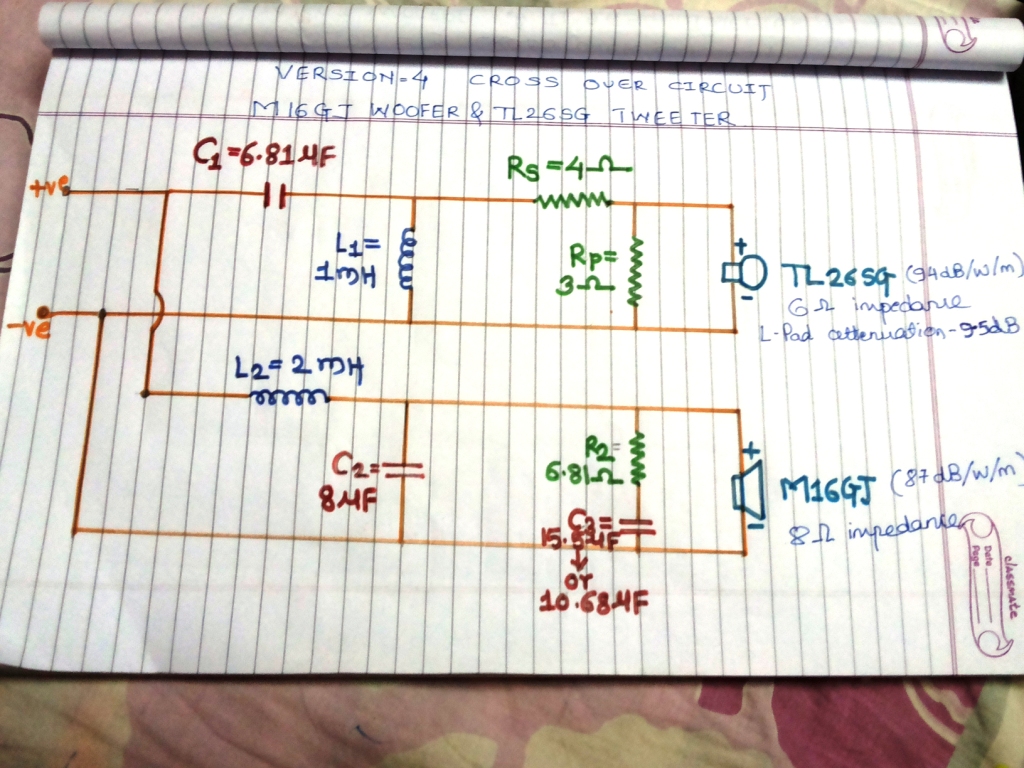 VERSION-4 CROSS OVER CIRCUIT
M16GJ WOOFER & TL26SG TWEETER
C1=6.81µF
Rs=4Ω
+ve
L1=
1mH
Rp=
3Ω
+
-
TL26SG (94dB/W/m)
6Ω impedance
L-Pad attenuation-9.5dB
-ve
L2=2mH
C2=
8µF
R2=
6.81Ω
+
-
M16GJ (87dB/W/m)
8Ω impedance
C3=
or
10.68µF
classmate
Date
Page